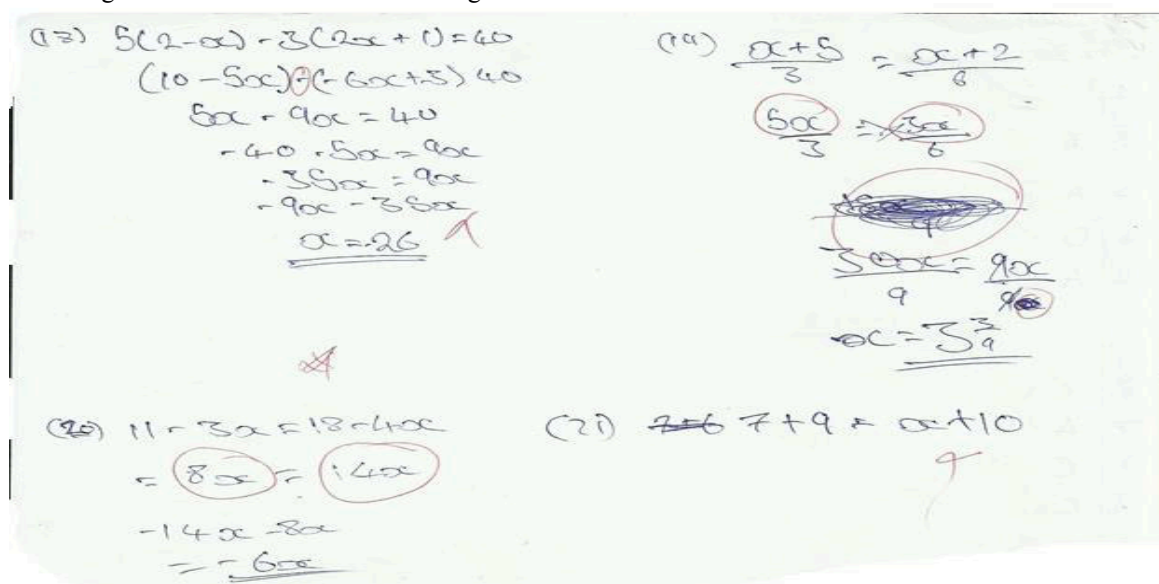 (13) 5(2-x) - 3(2x + 1) = 40
(10 - 5x) - (-6x+3) 40
5x - 9x = 40
-40 - 5x = 9x
-35x = 9x
-9x - 35x
x = -26
(19) x+5/3 = x+2/6
5x/3 = 3x/6
30x/9 = 9x/9
x = 3 3/9
(20) 11 - 3x = 18 - 4x
= 8x = 14x
-14x - 8x
= -6x
(21) 7+9 = x+10